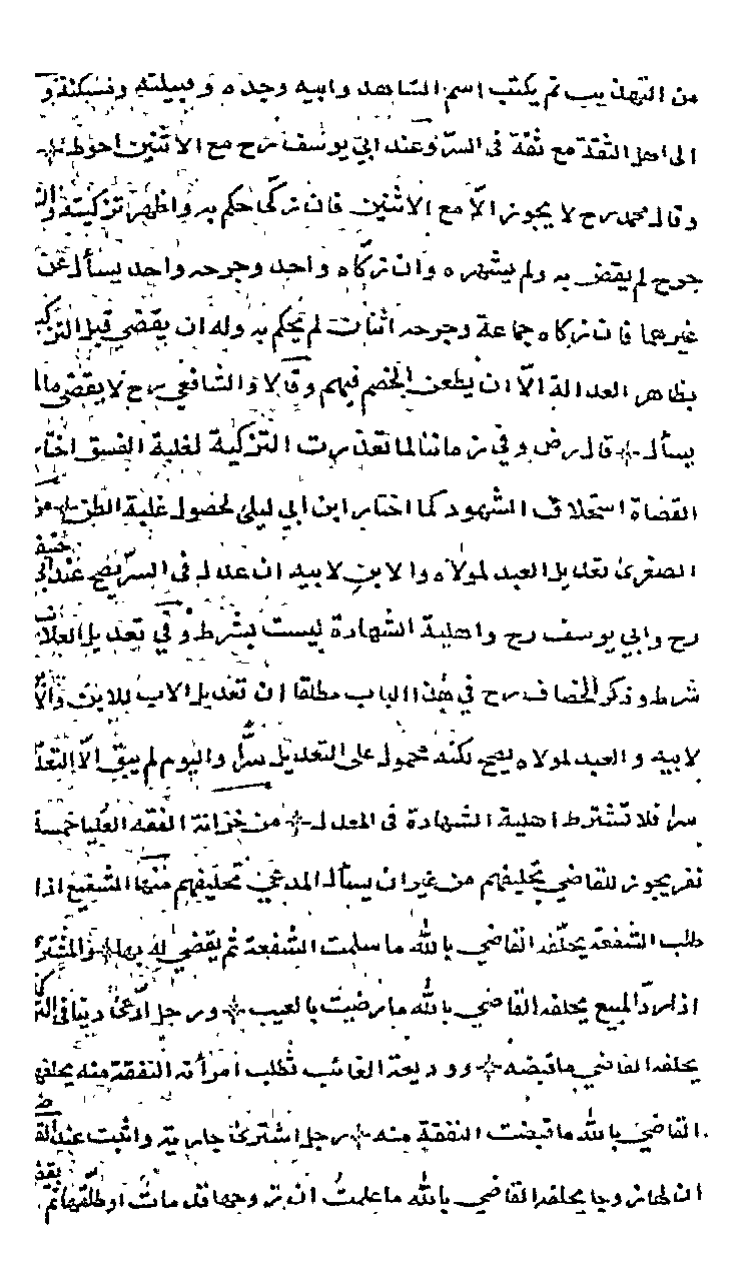 من التهذيب ثم يكتب اسم الشاهد وابيه وجده وقبيلته ومسكنة و
الى اهل الثقة مع ثقة فى السرّ وعند ابى يوسف رح مع الاثنين احوط
وقال محمد رح لا يجوز الّا مع الاثنين فان زكّا حكم به واظهر تزكيته
جرح لم يقض به ولم يشهره وان زكّاه واحد وجرحه واحد يسأل عن
غيرهما فان زكاه جماعة وجرحه اثنان لم يحكم به وله ان يقضى قبل
بظاهر العدالة الّا ان يطعن الخصم فيهم وقالا والشافعى رح لا يقضى مالم
يسأل قال رض وفى زماننا لما تعذرت التزكية لغلبة الفسق اختار
القضاة استحلاف الشهود كما اختار ابن ابى ليلى لحصول غلبة الظن من
الصغرى تعديل العبد لمولاه والابن لابيه ان عدل فى السرّ يصح عند
رح وابى يوسف رح واهلية الشهادة ليست بشرط وفى تعديل
شرط وذكر الخصاف رح فى هذا الباب مطلقا ان تعديل الاب للابن
لابيه والعبد لمولاه يصح لكنه محمول على التعديل سرّا واليوم لم يبق الّا
سرا فلا تشترط اهلية الشهادة فى المعدل من خزانة الفقه العليا خمسة
نفر يجوز للقاضى تحليفهم من غير ان يسأل المدعى تحليفهم منها الشفيع اذا
طلب الشفعة يحلّفه القاضى بالله ما سلمت الشفعة ثم يقضى له بها
اذا ردّ المبيع يحلفه القاضى بالله ما رضيت بالعيب ورجل ادّعى دينا فى
يحلفه القاضى ما قبضه ووديعة الغائب تطلب امرأته النفقة منه
القاضى بالله ما قبضت النفقة منه رجل اشترى جارية واثبت عند
ان لها زوجا يحلفه القاضى بالله ما علمت ان زوجها قد مات او طلقها ثم